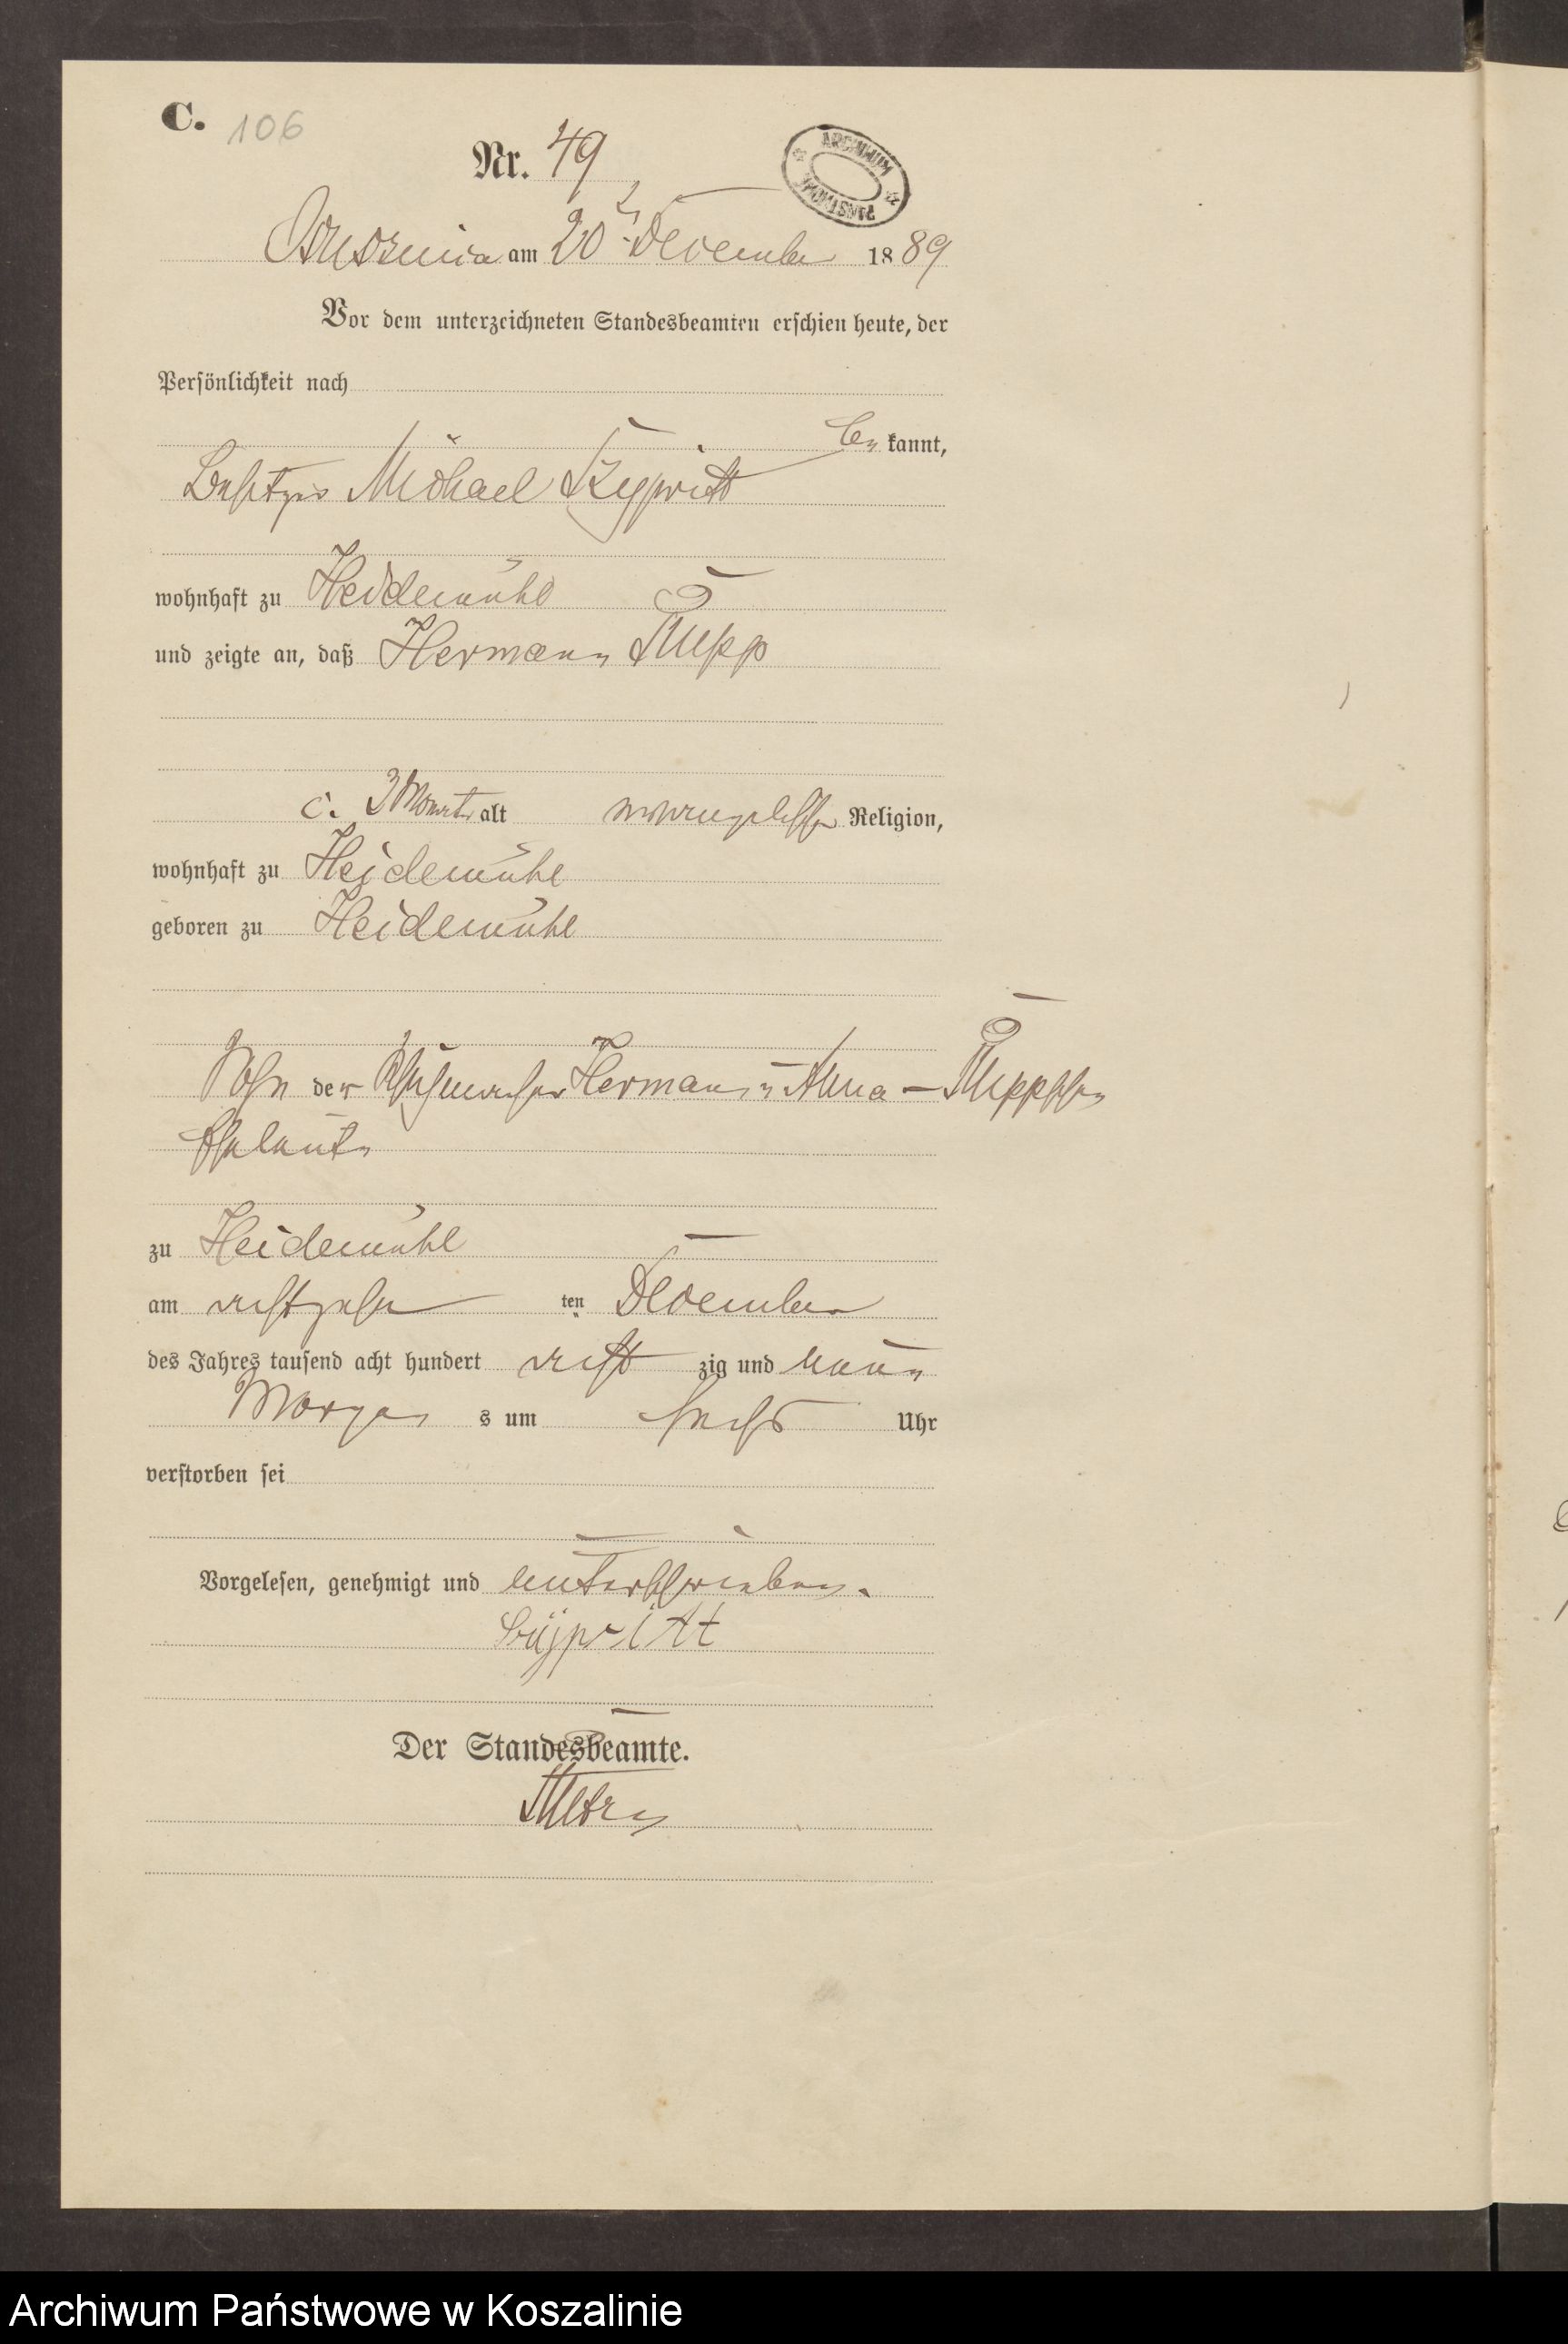 C. 106
Nr. 49
ARCHIWUM
PAŃSTWOWE
am 20 December 1889
Vor dem unterzeichneten Standesbeamten erschien heute, der
Persönlichkeit nach
be kannt,
Besitzer Michael
wohnhaft zu Heidemühl
und zeigte an, daß Hermann Rupp
c. 3 Monate alt evangelischer Religion,
wohnhaft zu Heidemühl
geboren zu Heidemühl
Sohn der Hermann u Anna – Ruppschen
Eheleute
zu Heidemühl
am achtzehn ten December
des Jahres tausend acht hundert acht zig und neun
Morgen s um sechs Uhr
verstorben sei
Vorgelesen, genehmigt und unterschrieben.
Der Standesbeamte.
Archiwum Państwowe w Koszalinie